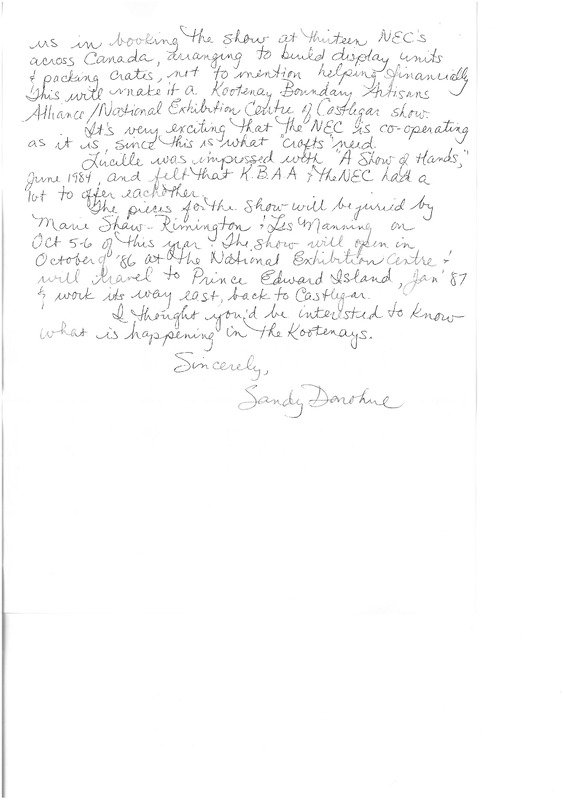 us in booking the show at thirteen NEC's
across Canada, arranging to build display units
& packing crates, not to mention helping financially
This will make it a Kootenay Boundary Artisans
Alliance/National Exhibition Centre of Castlegar show.
It's very exciting that the NEC is co-operating
as it is, since this is what "crafts" need.
Lucille was impressed with "A Show of Hands,"
June 1984, and felt that K.B.A.A & the NEC had a
lot to offer eachother.
The pieces for the show will be juried by
Marie Shaw-Rimington & Les Manning on
Oct 5-6 of this year. The show will open in
October of '86 at the National Exhibition Centre &
will travel to Prince Edward Island, Jan '87
& work its way east, back to Castlegar.
I thought you'd be interested to know
what is happening in the Kootenays.
Sincerely,
Sandy Donohue